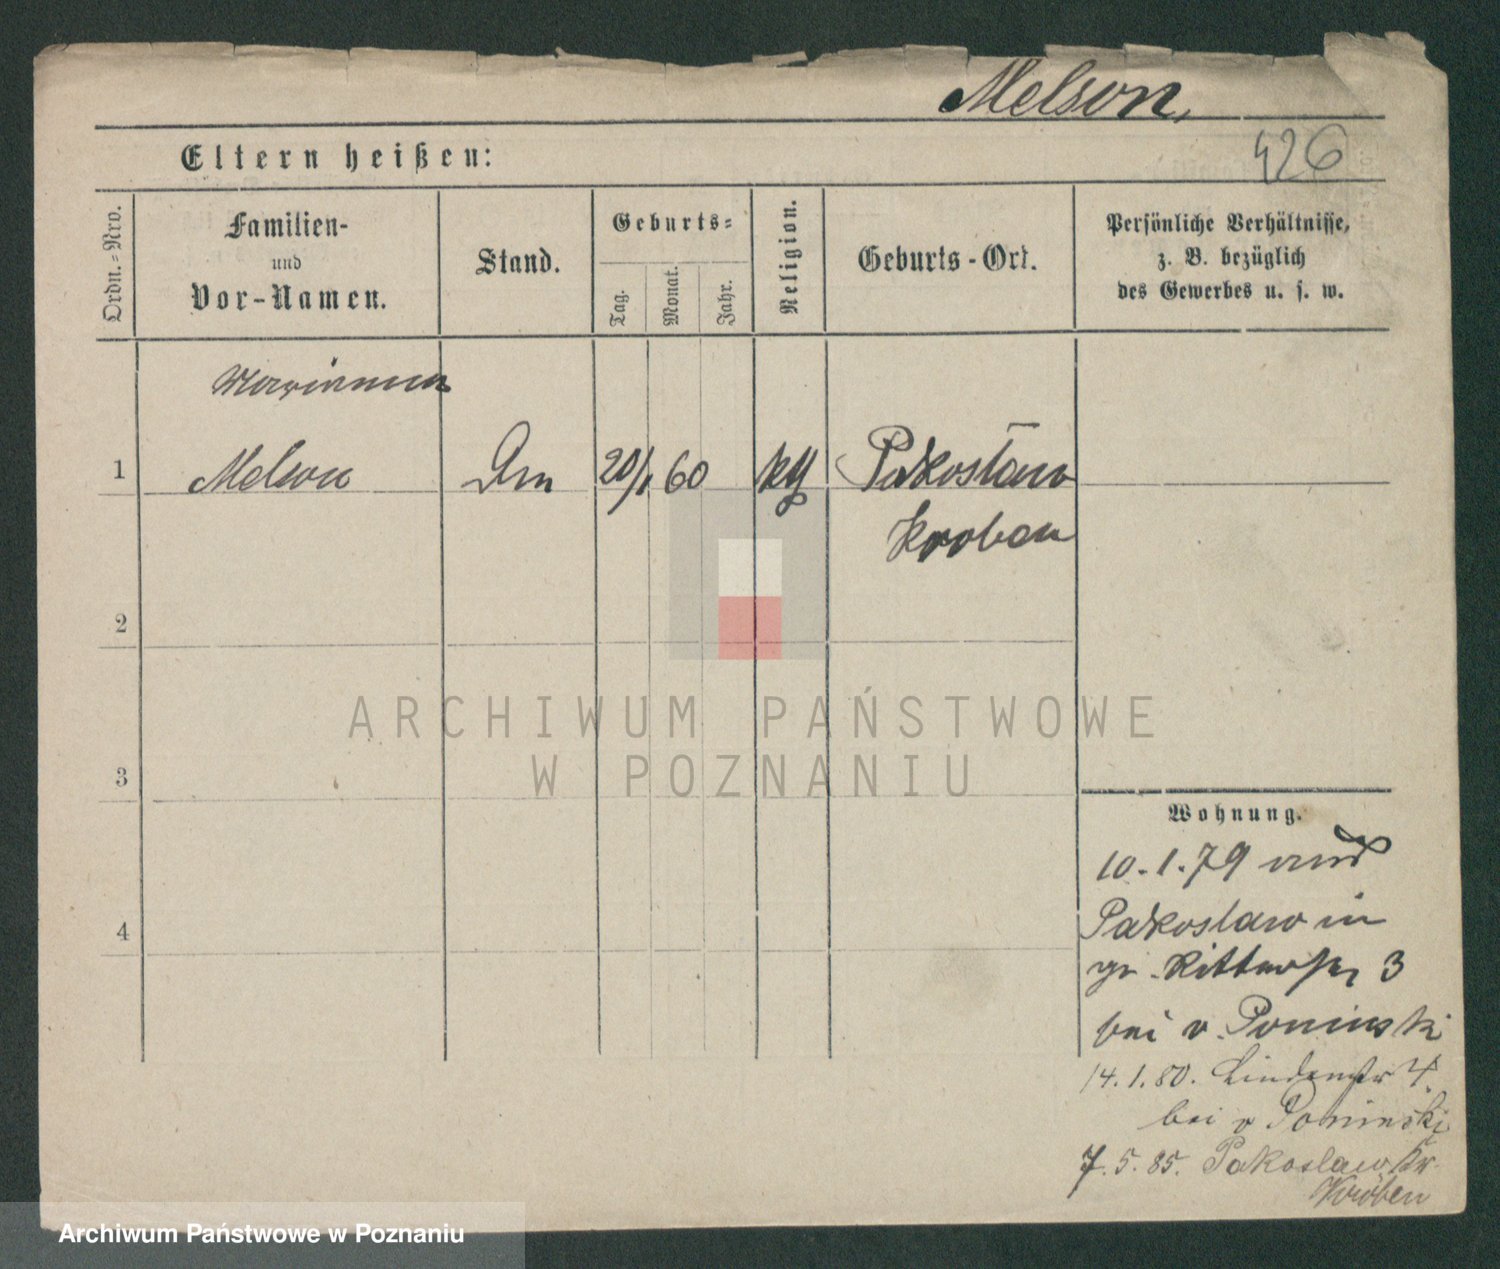 Melson,
Eltern heißen:
426
Ordn.-Nro.
Familien-
und
Vor-Namen.
Stand.
Geburts-
Tag.
Monat.
Jahr.
Religion.
Geburts-Ort.
Persönliche Verhältnisse,
z. B. bezüglich
des Gewerbes u. s. w.
Marianna
1 Melson 20/1 60 Pakosław
Kroben
2
ARCHIWUM PAŃSTWOWE
W POZNANIU
3
Wohnung.
10.1.79 aus
4
Pakoslaw in
gr. Ritterstr 3
bei v. Poninski
14.1.80. Lindenstr 4.
bei v Poninski
7.5.85. Pakoslaw Kr.
Kröben
Archiwum Państwowe w Poznaniu